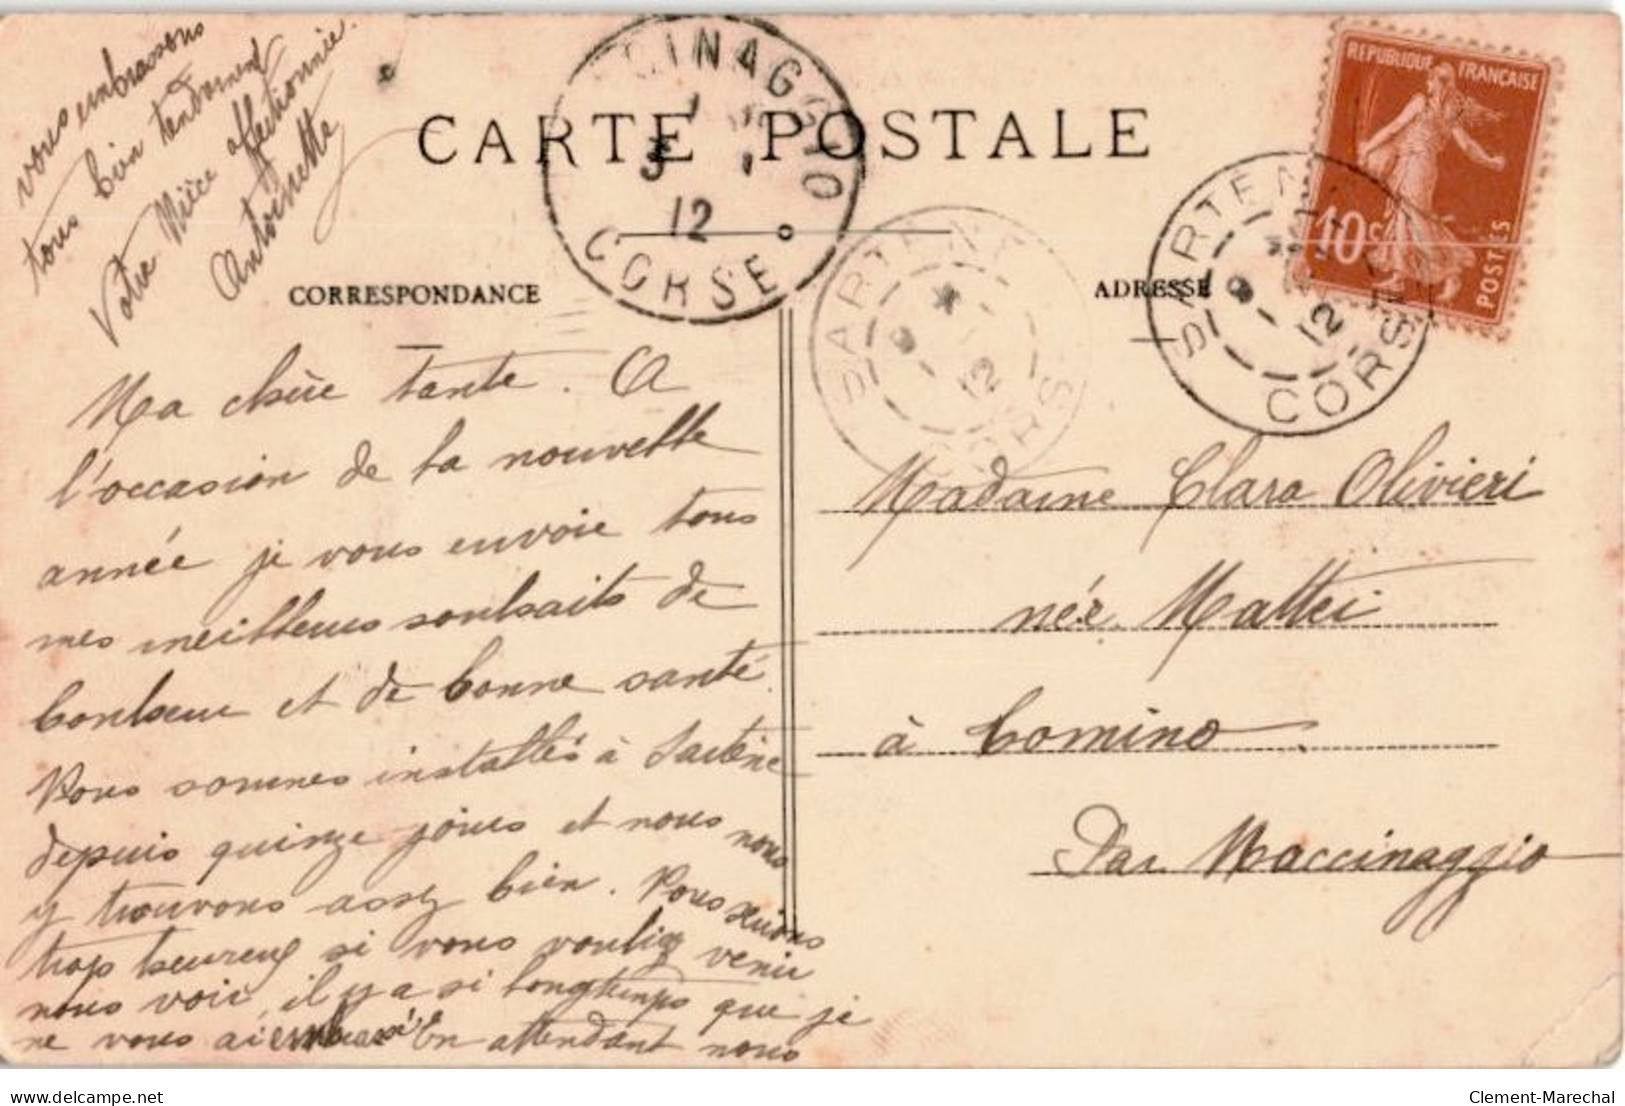 CARTE POSTALE
CORRESPONDANCE
ADRESSE
Ma chère tante. A
l'occasion de la nouvelle
année je vous envoie tous
mes meilleurs souhaits de
bonheur et de bonne santé.
Nous sommes installés à Sartène
depuis quinze jours et nous nous
y trouvons assez bien. Nous serions
trop heureux si vous vouliez venir
nous voir, il y a si longtemps que je
ne vous ai embrassé. En attendant nous
vous embrassons
tous bien tendrement
Votre Nièce affectionnée.
Antoinette
CINAGGIO
3 1
12
CORSE
SARTENE
9 1
12
CORSE
SARTENE
9 1
12
CORSE
REPUBLIQUE FRANÇAISE
10c
POSTES
Madame Clara Olivieri
née Mattei
à Comino.
Par Maccinaggio
delcampe.net
Clement-Marechal